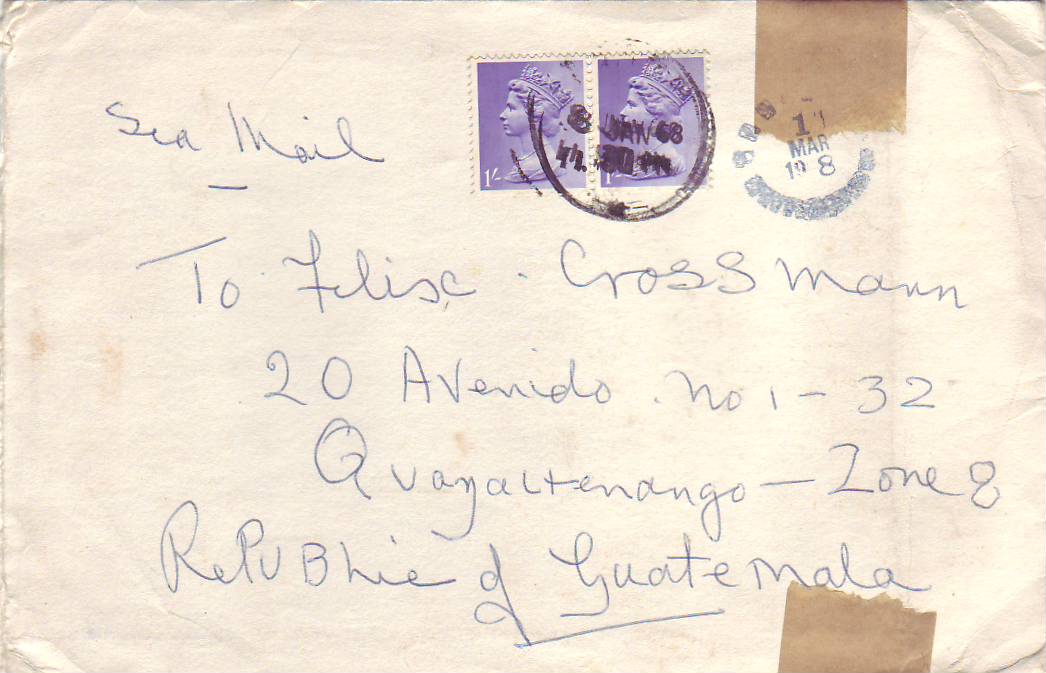 1/- 1/-
8 JAN 68
11.30
1
MAR
19 8
Sea Mail
To Felisc. Crossmann
20 Avenido. No 1-32
Quayaltenango - Zone 8
RePUBlie of Guatemala